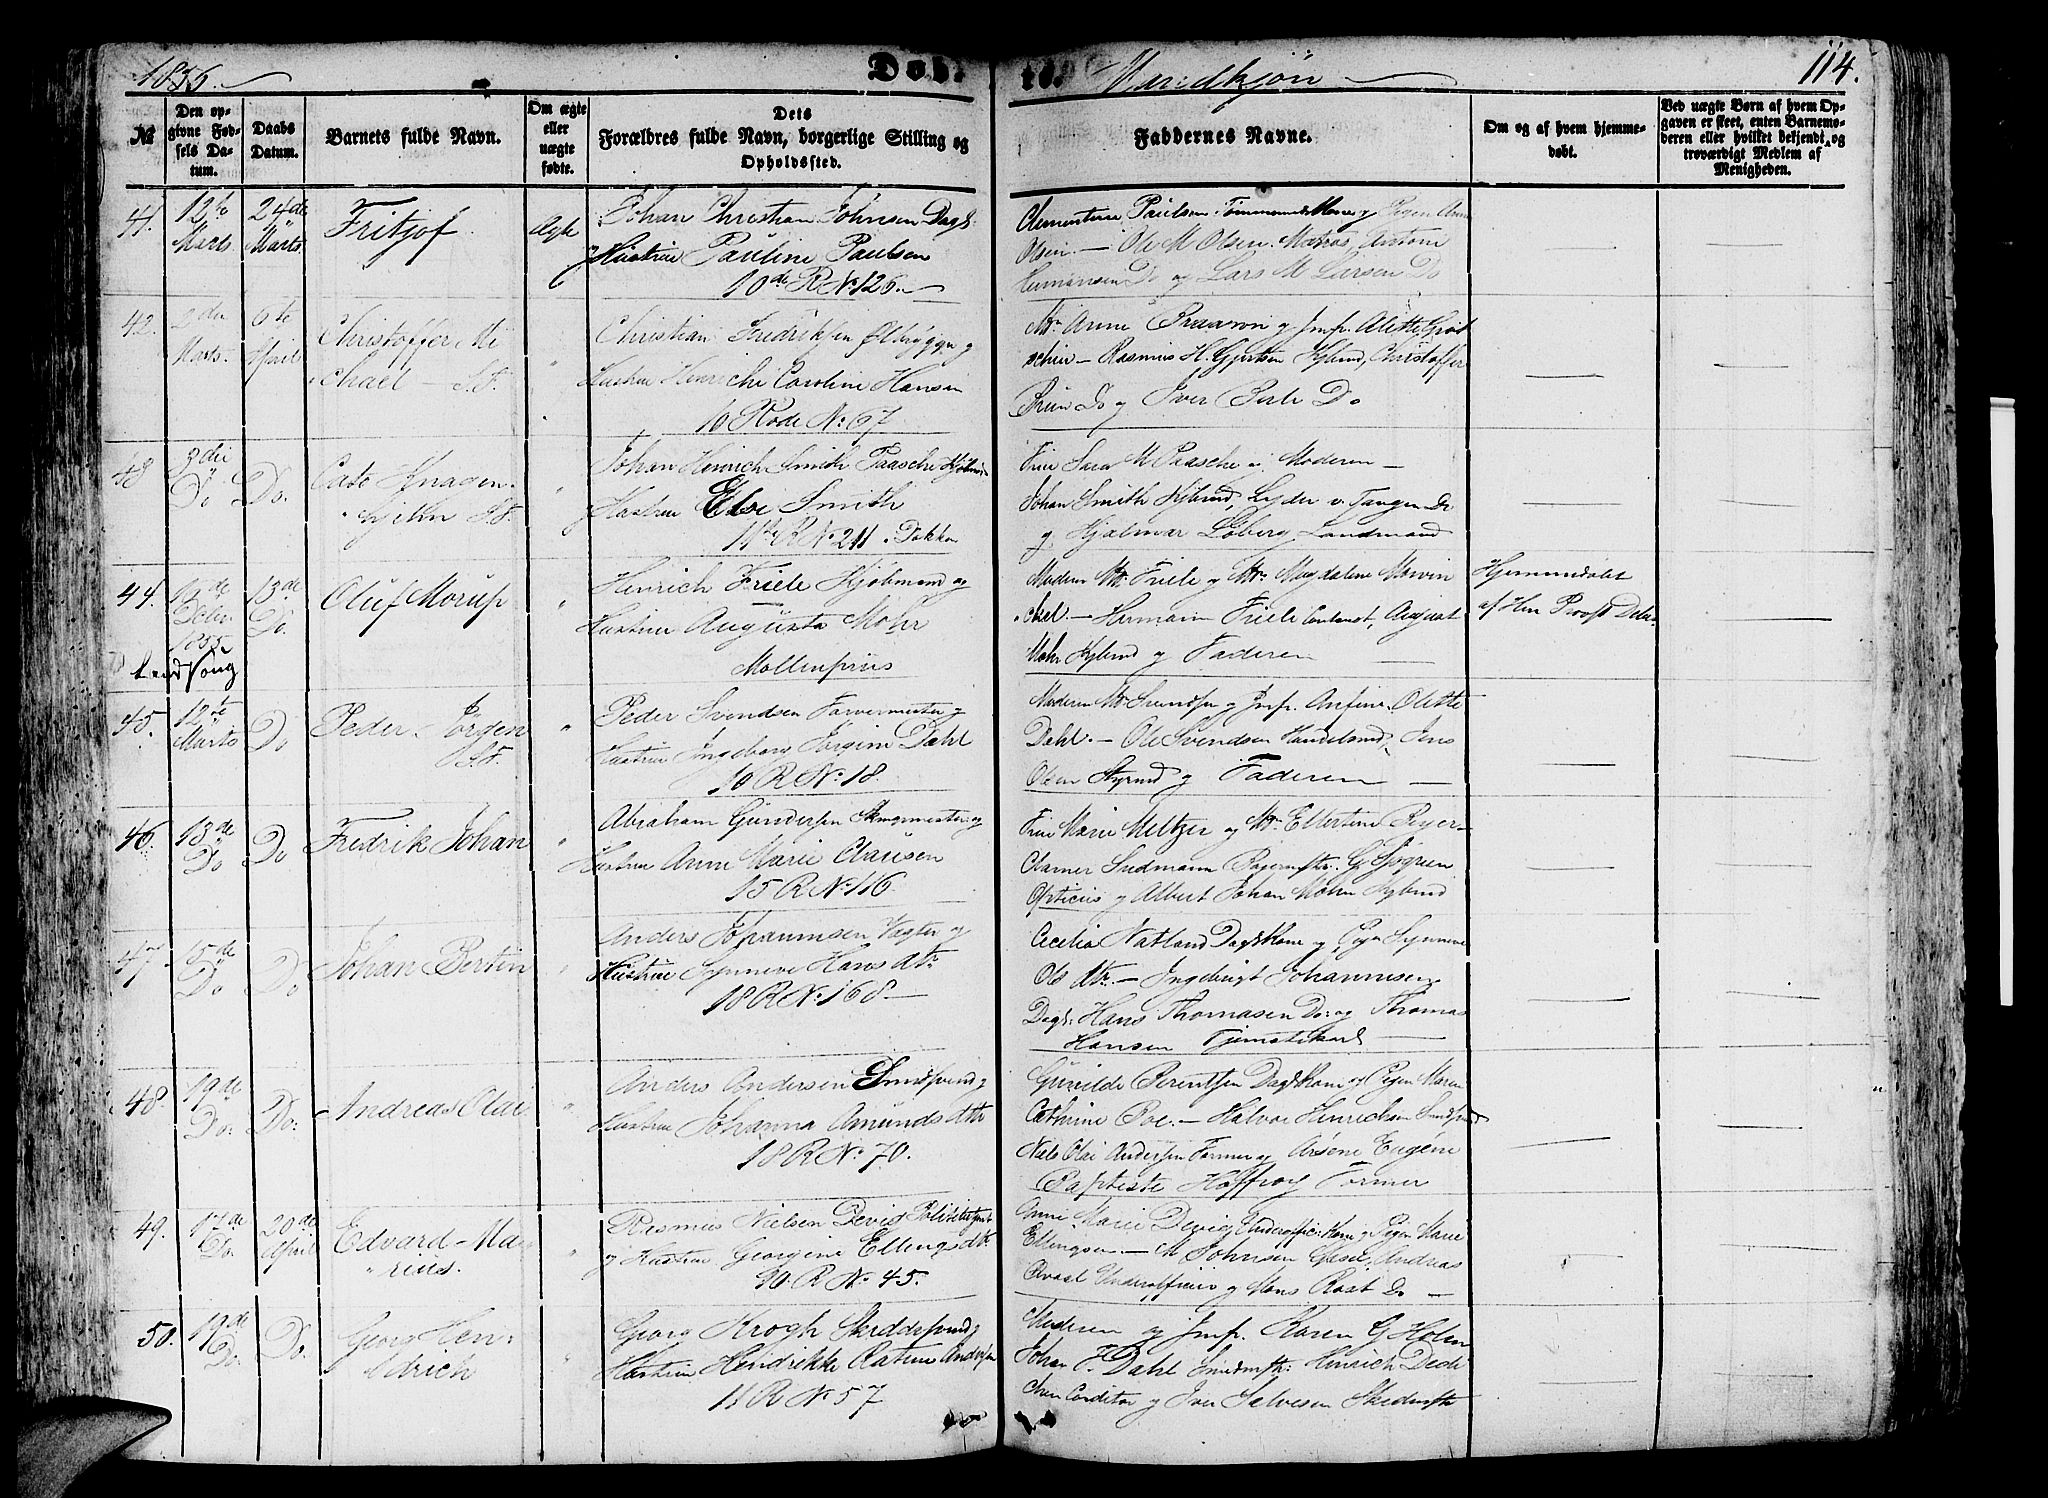 1856.
Døb-
te.
Mandkjøn
114.
No
Den op-
givne Fød-
sels Da-
tum.
Daabs
Datum.
Barnets fulde Navn.
Om ægte
eller
uægte
fødte.
Dets
Forældres fulde Navn, borgerlige Stilling og
Opholdssted.
Faddernes Navne.
Om og af hvem hjemme-
døbt.
Ved uægte Børn af hvem Op-
gaven er skeet, enten Barnemo-
deren eller hvilket bekjendt og
troværdigt Medlem af
Menigheden.
41.
12te
Marts
24de
Marts
Fritjof
Ægte
Johan Christian Johnsen Dagk.
og Hustrue Pauline Paulsen
10de R No 126.
Clementine Paulsen Tømmermds Kone og Pigen Anne
Olsen - Ole M Olsen Matros, Antoni
Hermansen Do og Lars M Larsen Do
42.
2den
Marts.
6te
April
Christoffer Mi
chael
Christian Fredriksen Ølbrygger og
Hustrue Henriche Caroline Hansen
16 Rode No 67
Anne og Jmf. Alette
Rasmus H. Gjertsen Kjbmd, Christoffer
Do og Iver Do
43
3die
Do
Do.
Cato Knagen-
hjelm
Johan Henrich Smith Paasche Kjøbmd
og Hustrue Else Smith
11te R No 211. Dokken
Frue Sara M Paasche, Moderen -
Johan Smith Kjbmd, Lyder v. Tangen Do
og Hjalmar Løberg, Landmand
44.
Decbr
1855
13de
Do.
Oluf Morup
Henrich Friele Kjøbmand og
Hustrue Augusta Mohr
Møllenpriis
Moderen Md. Friele og Md. Magdalene
Hermann Friele Contorist, August
Mohr Kjbmd og Faderen
Hjemmedøbt
af Hr Provst
Landsogn
45.
12te
Marts
Do
Peder Jørgen
Peder Svendsen Farvermester og
Hustrue Ingeborg Jørgine Dahl
16 R No 18.
Moderen Md Svendsen og Jmf. Anfine Olette
Dahl. - Ole Svendsen Handelsmd, Jens
Olsen Styrmd og Faderen
46.
13de
Do
Do
Fredrik Johan
Abraham Gundersen og
Hustrue Anne Marie Clausen
15 R No 116
Frue Marie Meltzer og Md. Ellertine Beyer -
Clamer Ludmann Bagermstr. G Sjøgreen
Opticus og Albert Johan Mohn Kjbmd
47.
15de
Do
Do
Johan Bertin
Anders Johannesen Vægter og
Hustrue Synneve Hansdtr.
18 R No 168
Cecelia Natland Dagk Kone og Pign Synneve
Ols dtr. - Ingebrigt Johannesen
Dagk: Hans Thomasen Do: og Thomas
Hansen Tjenestekarl
48.
19de
Do:
Do:
Andreas Olai
Anders Andersen og
Hustrue Johanna Amunds dtr
18 R No. 70.
Gunilde Berentsen Dagk Kone og Pigen Maren
Cathrine Boe. - Halvor Henrichsen
Niels Olai Andersen Former og Arséne Eugéne
Baptiste Hoffroy Former
49.
17de
Do.
20de
April
Edvard Ma-
rius.
Rasmus Nielsen Devig Politibetjent
og Hustrue Georgine Ellingsdtr.
20 R No. 45.
Anne Marie Devig Underofficiers Kone og Pigen Marie
Ellingsen - M Johnsen Gesel, Andreas
Underofficier og Mons Rast Do -
50.
19de
Do:
Do.
Georg Hen-
drich
Georg Krogh og
Hustrue Hendrikke Andersen
11 R No 57
Moderen og Jmf. Karen G Holm
Johan F. Dahl Smedmstr: Hinrich Dede
chen Conditor og Iver Salvesen